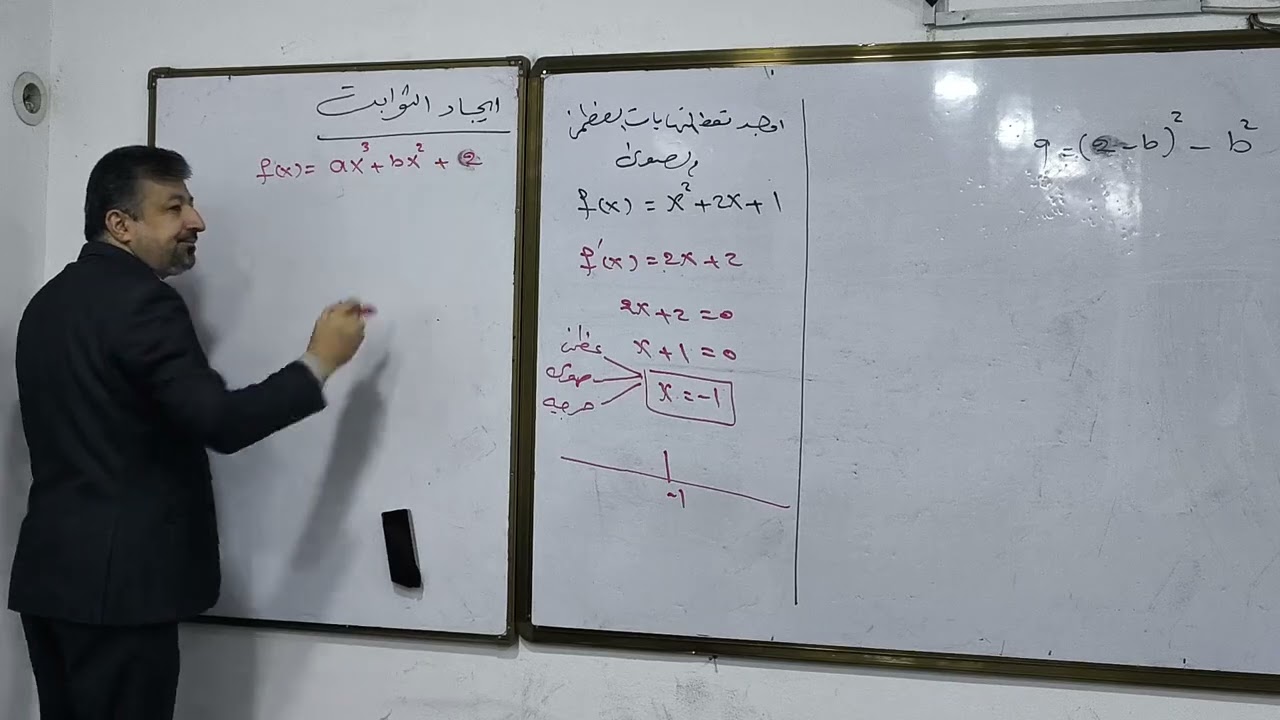 ايجاد الثوابت
f(x) = ax³ + bx² + 2
اوجد نقط النهايات العظمى
والصغرى
f(x) = x² + 2x + 1
f'(x) = 2x + 2
2x + 2 = 0
x + 1 = 0
عظمى
صغرى
حرجة
x = -1
-1
9 = (2 - b)² - b²